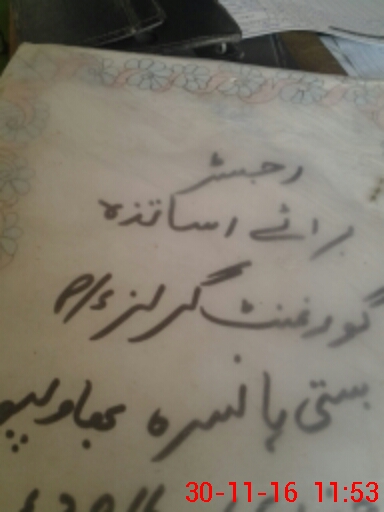 رجسٹر
برائے اساتذہ
گورنمنٹ گرلز P/S
بستی پانسرہ بہاولپو
30-11-16 11:53